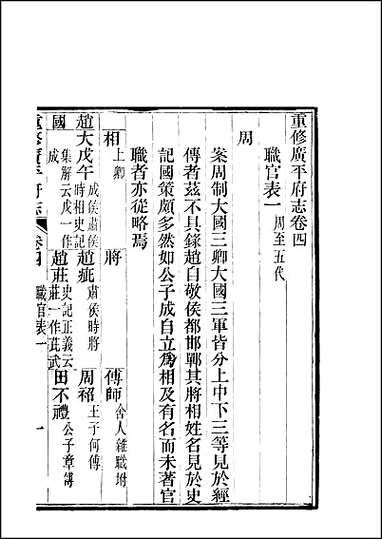 重修廣平府志卷四
職官表一 周至五代
周
案周制大國三卿大國三軍皆分上中下三等見於經
傳者茲不具錄趙自敬侯都邯鄲其將相姓名見於史
記國策頗多然如公子成自立爲相及有名而未著官
職者亦從略焉
相 上卿 將 傅師 舍人雜職坿
趙 大戊午 成侯肅侯時相史記 趙疵 肅侯時將 周袑 王子何傅
國 集解云戊一作成 趙莊 史記正義云莊一作茈武 田不禮 公子章傅
重修廣平府志 卷四 職官表一 一